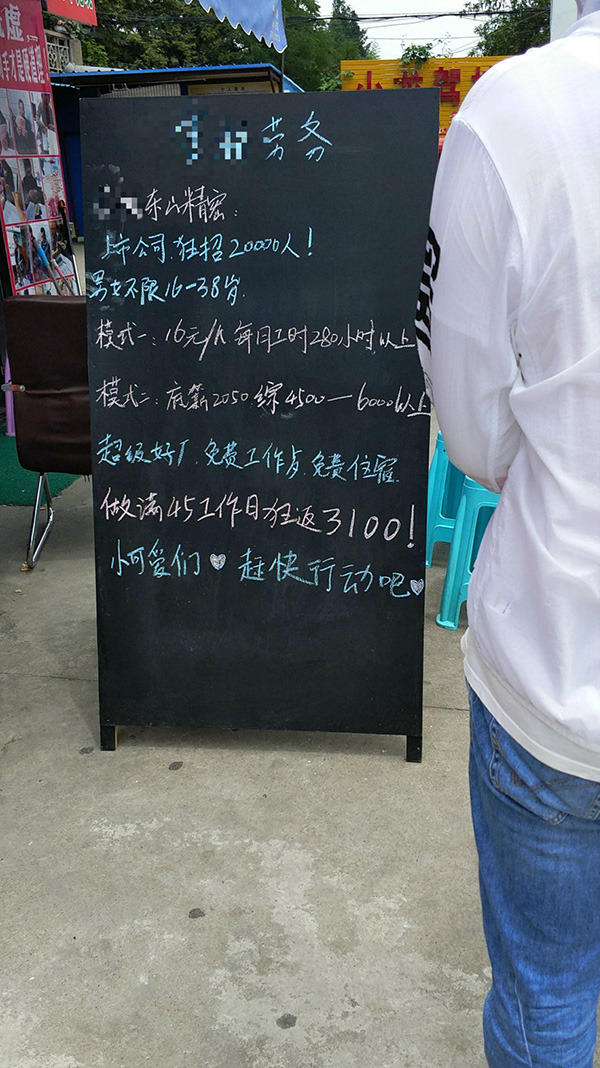 劳务
东山精密:
上市公司.狂招20000人!
男女不限16-38岁.
模式一:16元/h 每日工时280小时以上
模式二:底薪2050.综4500—6000以上
超级好厂.免费工作餐.免费住宿.
做满45工作日狂返3100!
小可爱们♥ 赶快行动吧♥
虚
小龙驾校